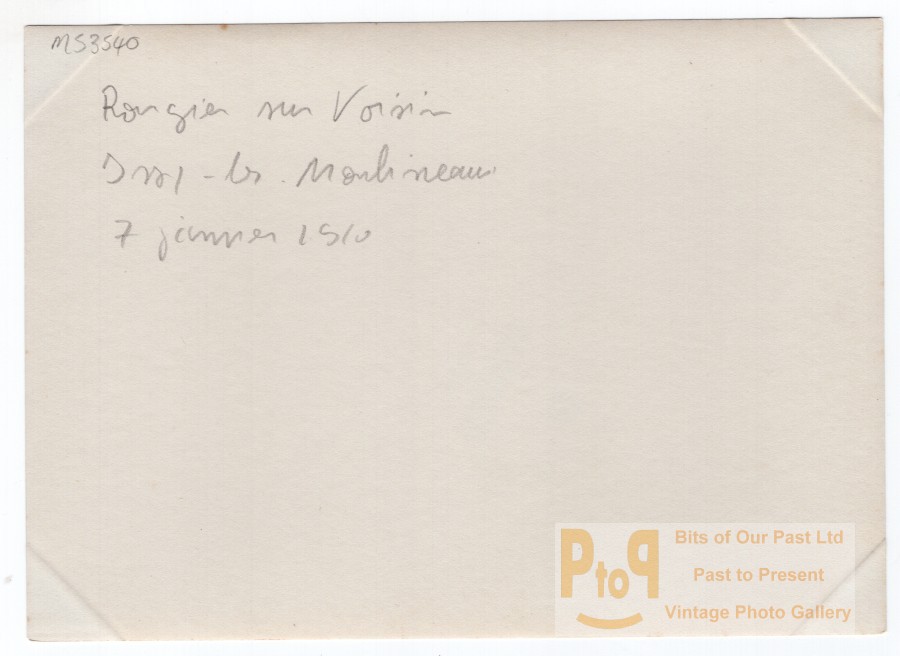 MS3540
Rougier sur Voisin
Issy-les-Moulineaux
7 janvier 1910
PtoP
Bits of Our Past Ltd
Past to Present
Vintage Photo Gallery